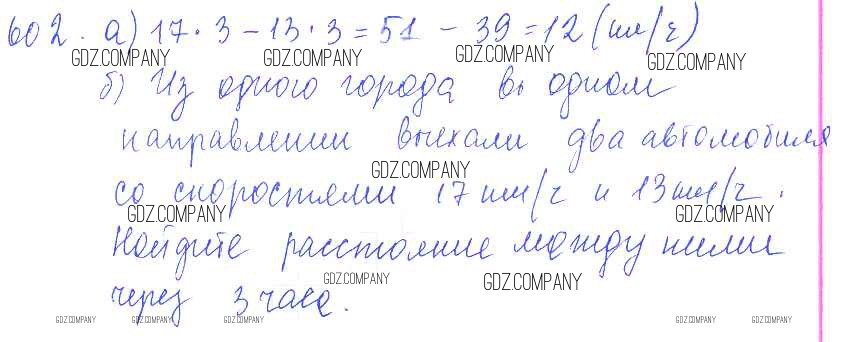 602. а) 17 · 3 - 13 · 3 = 51 - 39 = 12 (км/ч)
GDZ.COMPANY GDZ.COMPANY GDZ.COMPANY GDZ.COMPANY
б) Из одного города в одном
направлении выехали два автомобиля
GDZ.COMPANY
со скоростями 17 км/ч и 13 км/ч.
GDZ.COMPANY GDZ.COMPANY
Найдите расстояние между ними
GDZ.COMPANY GDZ.COMPANY
через 3 часа.
GDZ.COMPANY GDZ.COMPANY GDZ.COMPANY GDZ.COMPANY GDZ.COMPANY